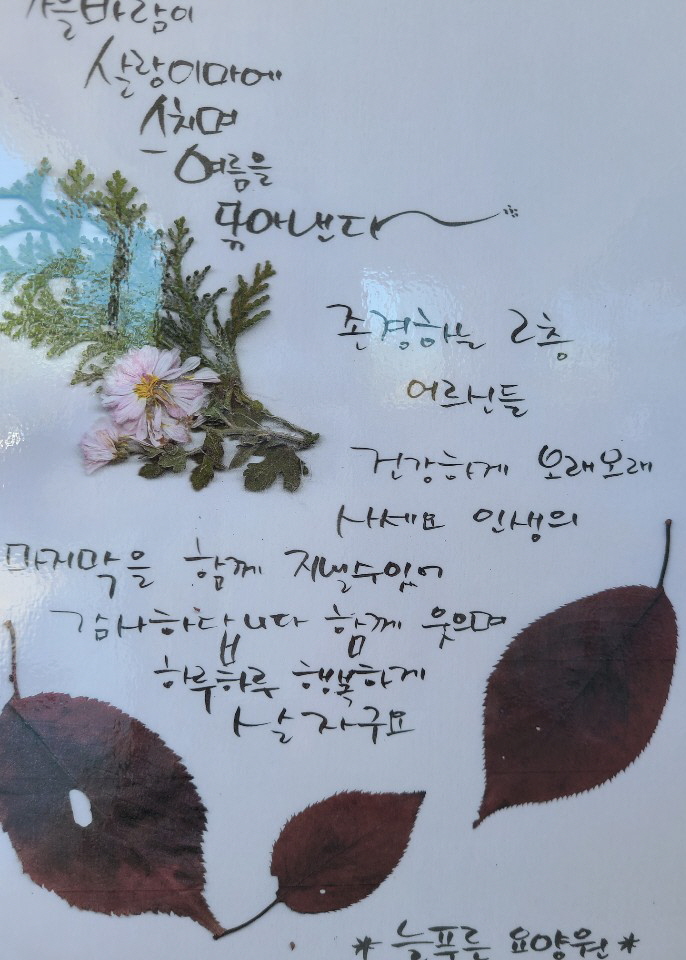 가을바람이
살랑이마에
스치며
여름을
닦아낸다
존경하는 2층
어르신들
건강하게 오래오래
사세요 인생의
마지막을 함께 지낼수있어
감사하답니다 함께 웃으며
하루하루 행복하게
살자구요
* 늘푸른 요양원 *